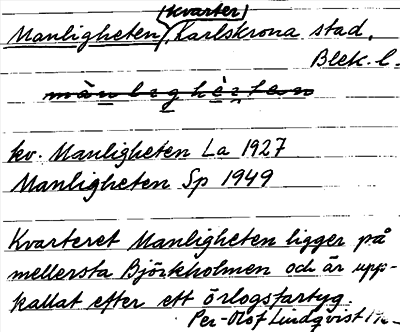 (kvarter)
Manligheten, Karlskrona stad,
Blek. l.
kv. Manligheten La 1927
Manligheten Sp 1949
Kvarteret Manligheten ligger på
mellersta Björkholmen och är upp-
kallat efter ett örlogsfartyg.
Per-Olof Lindqvist